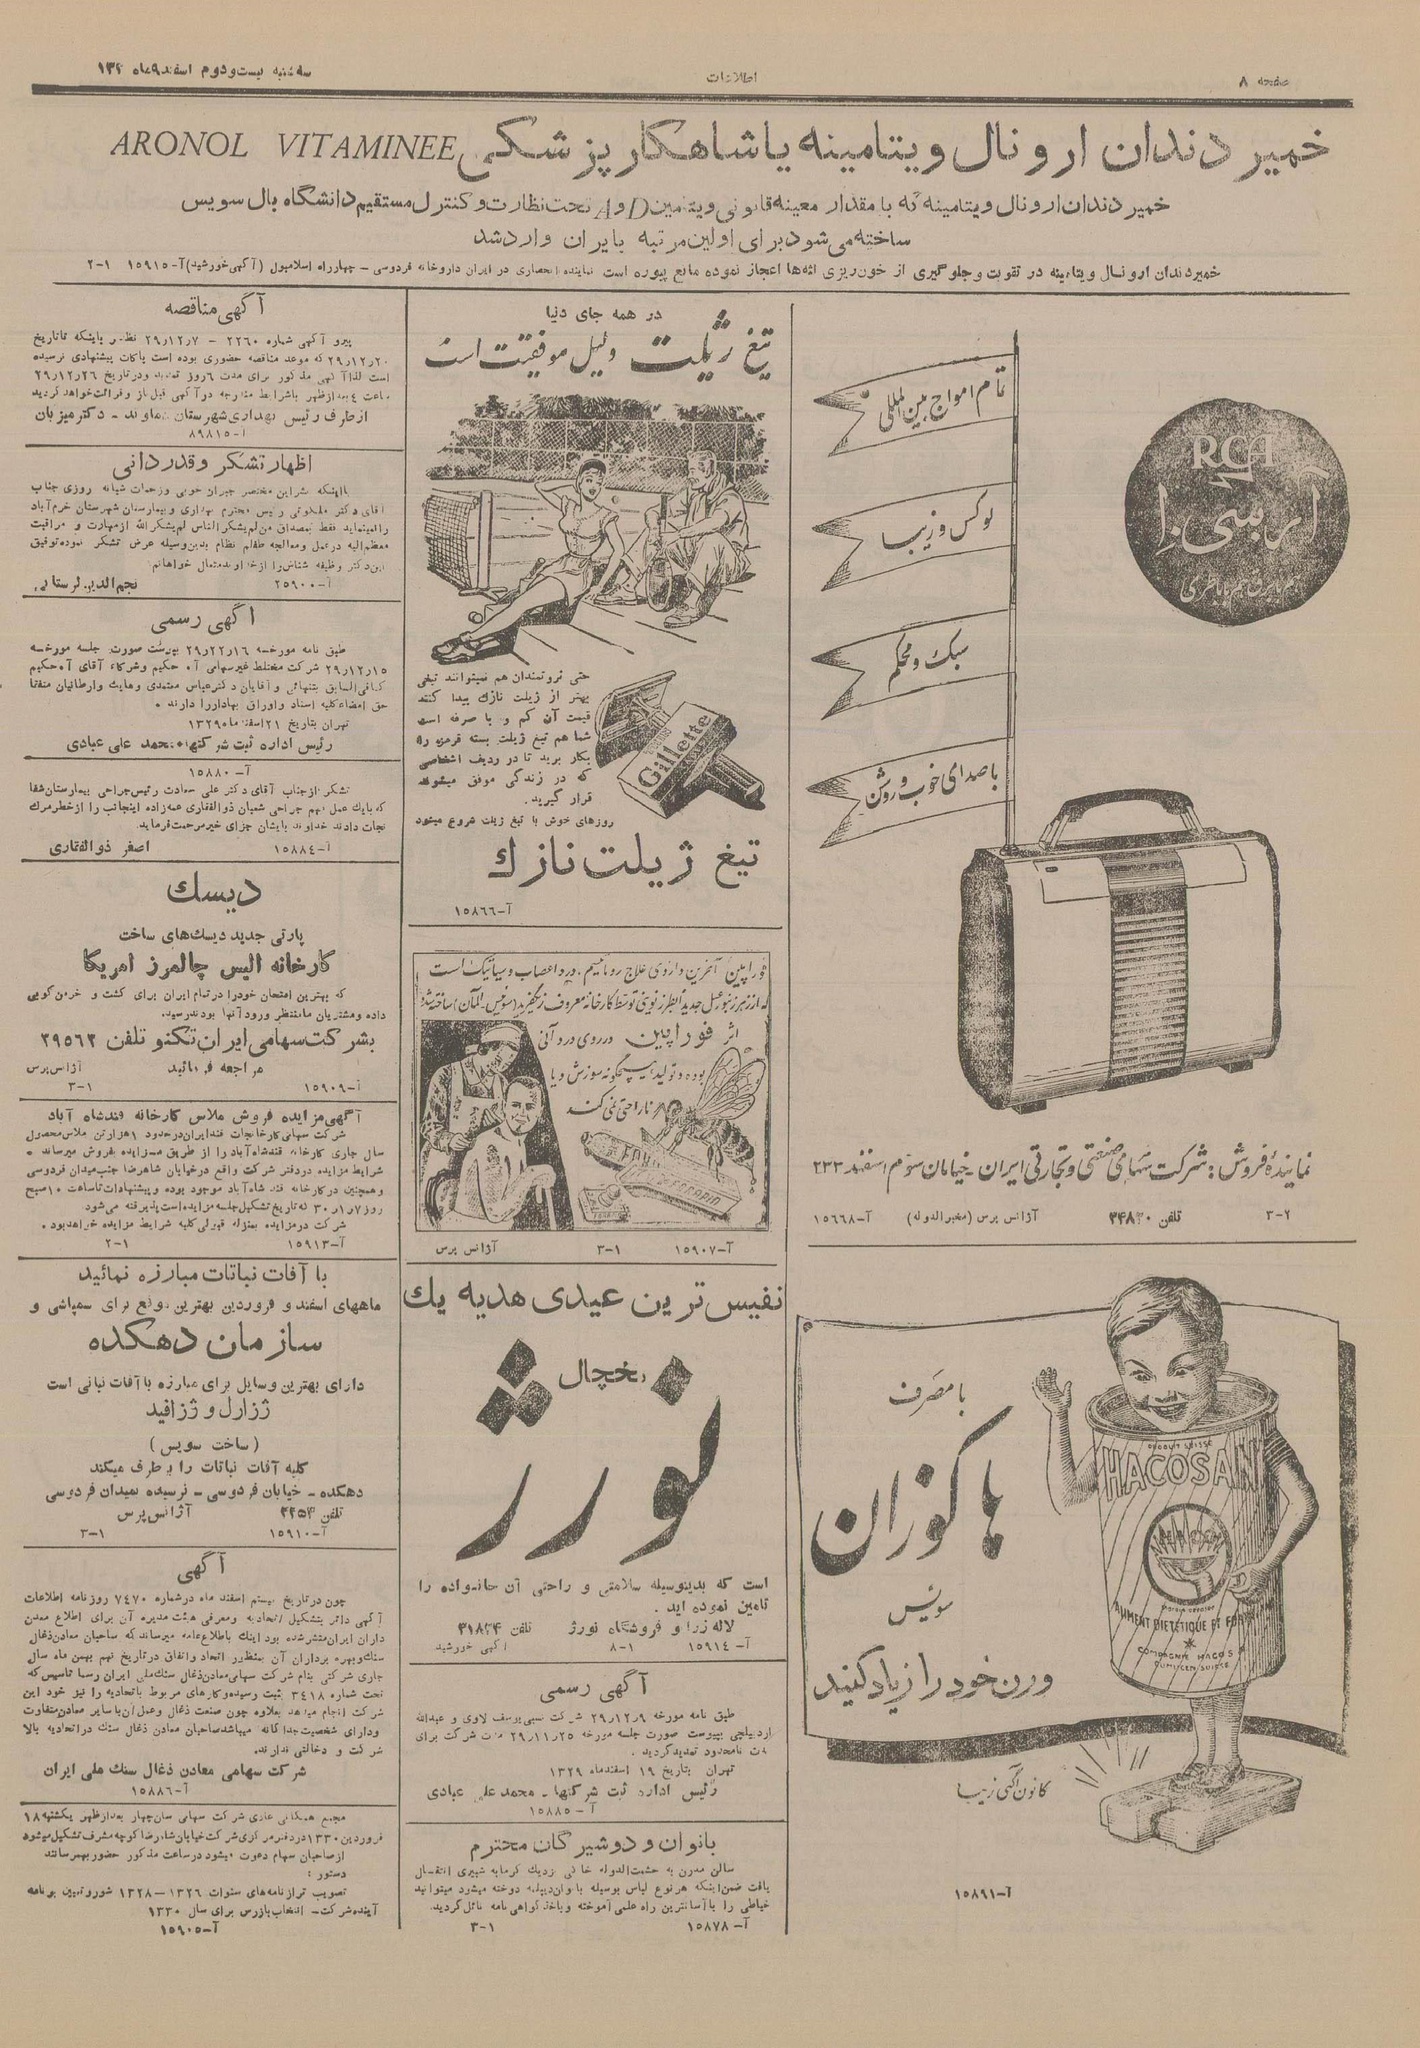 صفحه ۸
اطلاعات
سه‌شنبه بیست و دوم اسفندماه
خمیر دندان ارونال ویتامینه یا شاهکار پزشکی ARONOL VITAMINEE
خمیر دندان ارونال ویتامینه که با مقدار معینه قانونی ویتامین D و A تحت نظارت و کنترل مستقیم دانشگاه بال سویس
ساخته می‌شود برای اولین مرتبه بایران وارد شد
خمیردندان ارونال ویتامینه در تقویت و جلوگیری از خون‌ریزی لثه‌ها اعجاز نموده مانع پیوره است نماینده انحصاری در ایران داروخانه فردوسی - چهارراه اسلامبول (آگهی خورشید) آ-۱۵۹۱۵ ۲-۱
RCA
آر.سی.ا
تمام امواج بین‌المللی
لوکس و زیبا
سبک و محکم
با صدای خوب و روشن
نمایندهٔ فروش : شرکت سهامی صنعتی و تجارتی ایران - خیابان سوم اسفند ۲۳۳
۳-۲ تلفن ۳۴۸۳۰ آژانس پرس (مخبرالدوله) آ-۱۵۶۶۸
با مصرف
هاکوزان
سویس
وزن خود را زیاد کنید
PRODUIT SUISSE
HACOSAN
ALIMENT DIETETIQUE ET FORTIFIANT
COMPAGNIE HACO S.
GUMLIGEN SUISSE
کانون آگهی زیبا
آ-۱۵۸۹۱
در همه جای دنیا
تیغ ژیلت دلیل موفقیت است
حتی ثروتمندان هم نمیتوانند تیغی
بهتر از ژیلت نازک پیدا کنند
قیمت آن کم و با صرفه است
شما هم تیغ ژیلت بسته قرمز را
بکار برید تا در ردیف اشخاصی
که در زندگی موفق میشوند
قرار گیرید.
Gillette
روزهای خوش با تیغ ژیلت شروع میشود
تیغ ژیلت نازك
آ-۱۵۸۶۶
فوراپین آخرین داروی علاج روماتیسم، درد اعصاب و سیاتیک است
که از زهر زنبور عسل جدید بطرز نوینی توسط کارخانه معروف (سوئیس، آلمان) ساخته شده
اثر فوراپین در روی درد آنی
بوده و تولید هیچگونه سوزش و یا
ناراحتی نمی‌کند
آ-۱۵۹۰۷ ۳-۱ آژانس پرس
نفیس‌ترین عیدی هدیه یك
یخچال
نورژ
است که بدینوسیله سلامتی و راحتی آن خانواده را
تامین نموده اید .
لاله‌زار نو فروشگاه نورژ تلفن ۳۱۸۲۴
آ-۱۵۹۱۴ ۸-۱ آگهی خورشید
آگهی رسمی
طبق نامه مورخه ۲۹ر۱۲ر۹ شرکت نسبی یوسف لاوی و عبدالله
اردبیلچی بپیوست صورت جلسه مورخه ۲۹ر۱۱ر۲۵ مدت شرکت برای
مدت نامحدود تمدید گردید .
تهران بتاریخ ۱۹ اسفندماه ۱۳۲۹
رئیس اداره ثبت شرکتها - محمد علی عبادی
آ-۱۵۸۸۵
بانوان و دوشیزگان محترم
سالن مدرن به حشمت‌الدوله خانی نزدیك گرمابه شبیری انتقال
یافت ضمن اینکه هر نوع لباس بوسیله بانوان دیپلمه دوخته میشود میتوانید
خیاطی را باآسانترین راه علمی آموخته و باخذ گواهی نامه نائل گردید.
آ-۱۵۸۷۸ ۳-۱
آگهی مناقصه
پیرو آگهی شماره ۲۲۶۰ - ۲۹ر۱۲ر۷ نظر باینکه تاتاریخ
۲۹ر۱۲ر۲۰ که موعد مناقصه حضوری بوده است پاکات پیشنهادی نرسیده
است لذا آگهی مذکور برای مدت ۶ روز تمدید و در تاریخ ۲۹ر۱۲ر۲۶
ساعت ۴ بعدازظهر باشرایط مندرجه در آگهی قبل باز و قرائت خواهد گردید
از طرف رئیس بهداری شهرستان نهاوند - دکتر میزبان
آ-۸۹۸۱۵
اظهار تشکر و قدردانی
آقای دکتر رئیس محترم بهداری و بیمارستان شهرستان خرم‌آباد
را نمینماید فقط بمصداق من لم یشکر الناس لم یشکر الله از مهارت و مراقبت
معظم‌الیه در عمل و معالجه طفلم نظام بدین وسیله عرض تشکر نموده توفیق
این دکتر وظیفه شناس را از خداوند متعال خواهانم
آ-۲۵۹۰۰ نجم‌الدین لرستانی
آگهی رسمی
طبق نامه مورخه پیوست صورت جلسه مورخه
۲۹ر۱۲ر۱۵ شرکت مختلط غیرسهامی آ. حکیم و شرکاء آقای آ. حکیم
کمافی‌السابق بتنهائی و آقایان دکتر عباس معتمدی و هایك وارطانیان متفقا
حق امضاء کلیه اسناد و اوراق بهادار را دارند .
تهران بتاریخ ۲۱ اسفند ماه ۱۳۲۹
رئیس اداره ثبت شرکتها - محمد علی عبادی
آ-۱۵۸۸۰
تشکر از جناب آقای دکتر علی سعادت رئیس جراحی بیمارستان شفا
که با یك عمل مهم جراحی شعبان ذوالفقاری عمه‌زاده اینجانب را از خطر مرك
نجات دادند خداوند بایشان جزای خیر مرحمت فرماید.
آ-۱۵۸۸۴ اصغر ذوالفقاری
دیسك
پارتی جدید دیسك‌های ساخت
کارخانه الیس چالمرز امریکا
که بهترین امتحان خود را در تمام ایران برای کشت و خرمن‌کوبی
داده و مشتریان ما منتظر ورود آنها بودند رسید.
بشرکت سهامی ایران تکنو تلفن ۳۹۵۶۲
مراجعه فرمائید آژانس پرس
آ-۱۵۹۰۹ ۳-۱
آگهی مزایده فروش ملاس کارخانه قندشاه آباد
شرکت سهامی کارخانجات قند ایران در حدود ۱ هزار تن ملاس محصول
سال جاری کارخانه قندشاه‌آباد را از طریق مزایده بفروش میرساند .
شرایط مزایده در دفتر شرکت واقع در خیابان شاهرضا جنب میدان فردوسی
و همچنین در کارخانه قند شاه‌آباد موجود بوده و پیشنهادات تا ساعت ۱۰ صبح
روز ۳۰ر۱ر۷ که تاریخ تشکیل جلسه مزایده است پذیرفته می‌شود.
شرکت در مزایده بمنزله قبولی کلیه شرایط مزایده خواهد بود .
آ-۱۵۹۱۳ ۲-۱
با آفات نباتات مبارزه نمائید
ماههای اسفند و فروردین بهترین موقع برای سمپاشی و
سازمان دهکده
دارای بهترین وسایل برای مبارزه با آفات نباتی است
ژزارل و ژزافید
(ساخت سویس)
کلیه آفات نباتات را برطرف میکند
دهکده - خیابان فردوسی - نرسیده بمیدان فردوسی
تلفن آژانس پرس
آ-۱۵۹۱۰ ۳-۱
آگهی
چون در تاریخ بیستم اسفند ماه در شماره ۷۴۷۰ روزنامه اطلاعات
آگهی دائر بتشکیل اتحادیه و معرفی هیئت مدیره آن برای اطلاع معدن
داران ایران منتشر شده بود اینك باطلاع عامه میرساند که صاحبان معادن ذغال
سنك و بهره برداران آن بمنظور اتحاد و اتفاق در تاریخ نهم بهمن ماه سال
جاری شرکتی بنام شرکت سهامی معادن ذغال سنك ملی ایران رسما تاسیس که
تحت شماره ۳۴۱۸ ثبت رسیده و کارهای مربوط باتحادیه را نیز خود این
شرکت انجام میدهد بعلاوه چون صنعت ذغال و عمل آن با سایر معادن متفاوت
و دارای شخصیت جداگانه میباشد صاحبان معادن ذغال سنك در اتحادیه بالا
شرکت و دخالتی ندارند.
شرکت سهامی معادن ذغال سنك ملی ایران
آ-۱۵۸۸۶
مجمع همگانی عادی شرکت سهامی سان چهار بعد از ظهر یکشنبه ۱۸
فروردین ۱۳۳۰ در دفتر مرکزی شرکت خیابان شاهرضا کوچه مشرف تشکیل میشود
از صاحبان سهام دعوت میشود در ساعت مذکور حضور بهم رسانند
دستور :
تصویب ترازنامه‌های سنوات ۱۳۲۶ - ۱۳۲۸ شور و تعیین برنامه
آینده شرکت - انتخاب بازرس برای سال ۱۳۳۰
آ-۱۵۹۰۵